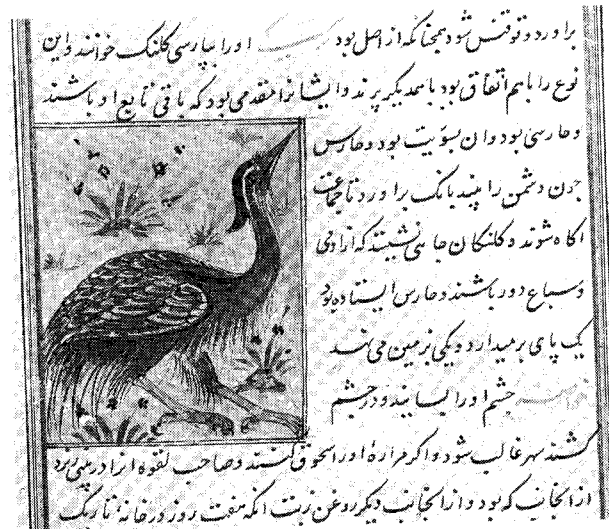 براورد و قوقنس شود همچنانکه از اصل بود او را بپارسی کلنک خوانند و این
نوع را باهم اتفاق بود با یکدیگر پرند و ایشانرا مقدمی بود که باقی تابع او باشند
و حارسی بود و ان بنوبت بود و حارس
چون دشمن را بیند بانک براورد تا جماعت
اکاه شوند و کلنکان جایی نشینند که از ادمی
و سباع دور باشند و حارس ایستاده بود
یک پای برمیدارد و یکی بزمین می نهد
چشم او را بسایند و در چشم
کشند سهر غالب شود و اکر مراره او را سحوق کنند و صاحب لقوه از ان در بینی ریزد
از انجانب که بود و از انجانب دیکر روغن زیت انکه هفت روز در خانه تاریک